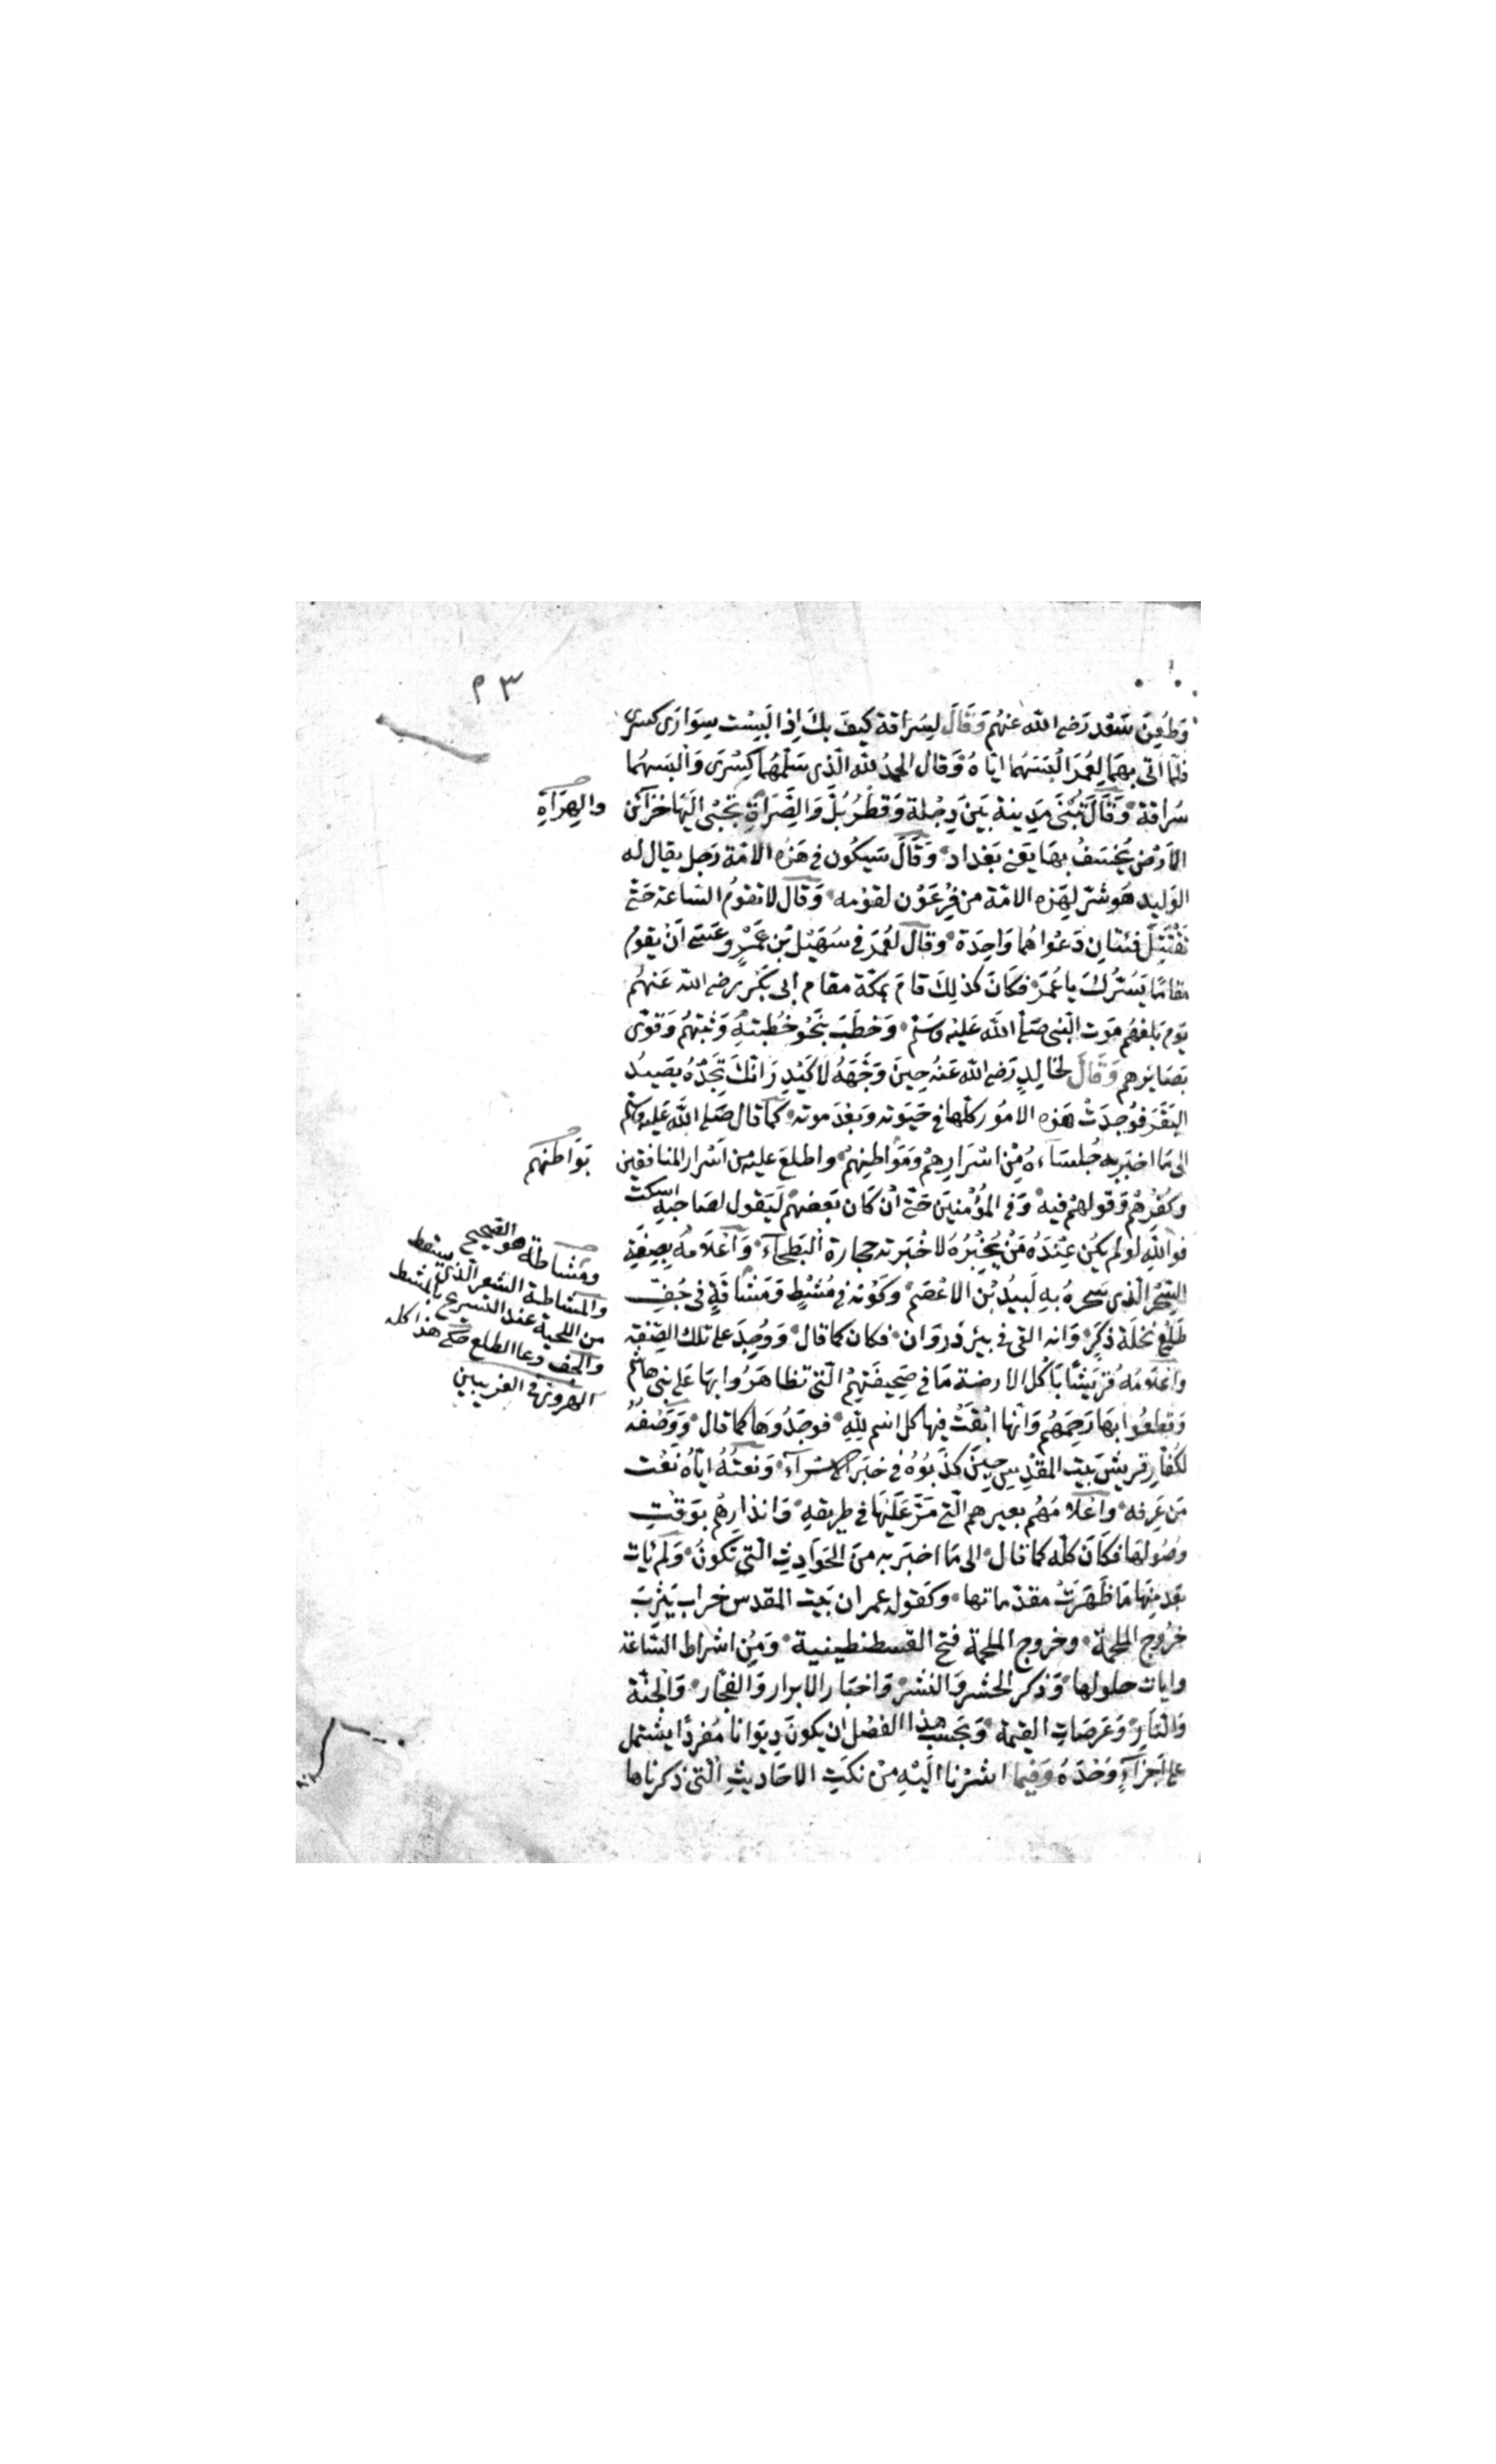 ٩٣
وَطُعِنَ سَعْد رَضى الله عنهُم وَقَالَ لِسُرَاقة كيفَ بكَ اِذا لَبِسْتَ سِوَارَى كسرى
فلمّا اتى بهمَا لِعُمَرَ اَلْبَسَهُما ايّاهُ وَقال الحمدُ للهِ الّذى سَلبَهُما كِسْرَى وَاَلْبَسَهُما
سُراقة وَقَالَ تُبْنَى مَدِينة بَيْنَ دِجْلة وَقُطْرُبُلَّ وَالصَّرَاةِ تُجْبَى اِلَيْهَا خَزَآئن
والهِرَآةِ
الاَرْضِ يُخْسَفُ بهَا يَعْنى بَغْداد وَقَالَ سَيكُون فى هَذِهِ الامّة رَجل يقال له
الوَليد هُوَ شرّ لِهَذِهِ الامّة من فِرْعَوْن لقوْمه وَقال لا تقومُ السّاعة حَتّى
تَقْتَتِلَ فئتانِ دَعْواهُما وَاحِدَة وقال لعُمَرَ فى سُهَيْل بْن عَمْرٍو عَسَى اَنْ يقومَ
مقامًا يَسُرُّكَ يا عُمَرُ فكَانَ كذلِكَ قامَ بمكّة مقام ابى بَكْرٍ رضى الله عَنهُم
يَوم بَلغهُم مَوت النّبى صَلّى الله عَليْهِ وَسَلّم وَخطَبَ بنَحْوِ خُطْبتِهِ وَثبّتهُم وَقوّى
بَصَايرهم وَقَالَ لخالِدٍ رَضى الله عَنهُ حِينَ وَجّهَهُ لاكَيْدِرَ اِنّكَ تَجِدُهُ يصَيدُ
البَقرَ فوُجِدَتْ هَذِهِ الامُور كلّها فى حَيَوته وَبَعْدَ موته كما قال صَلى الله عَليهِ وسلم
الى مَا اخبَرَ بهِ جُلسَاءَهُ مِنْ اسْرَارِهِمْ وَمَوَاطِنِهِمْ وَاطلعَ عليهِ من اَسْرار المنافقين
بَوَاطنهم
وَكُفْرِهِمْ وَقولهمْ فيهِ وَفى المُؤْمنِينَ حَتّى اَنْ كَانَ بَعضهُمْ لَيَقول لصَاحبهِ اسكتْ
فوَاللهِ لو لم يكن عِنْدَهُ مَنْ يُخْبِرُهُ لاَخْبَرته حجارة البَطحَآءِ وَاعْلاَمهُ بصِفَةِ
السِّحْرِ الّذى سَحرهُ بهِ لَبيدُ بْن الاعْصَم وَكَوْنه فى مُشْطٍ وَمُشَاقَةٍ فى جُفِّ
ومُشَاطَة هو الصّحيح
والمشاطة الشعر الّذى يسقط
من اللحية عند التسريح بالمشط
والجف وعا الطلع حكى هذا كله
الهروى فى الغريبين
طَلْعِ نخْلَة ذكَرٍ وَانه القِى فى بيْر ذَروَان فكان كما قال وَوُجِدَ عَلى تلك الصِّفةِ
وَاعْلاَمهُ قُرَيْشًا بِاَكْل الارضة مَا فى صَحيفَتِهِمُ الّتى تظاهَرُوا بهَا عَلى بنى هاشم
وَقطعُوا بهَا رَحِمَهُم وَاَنّها اَبْقَتْ فيها كل اسم للهِ فوجَدُوهَا كما قال وَوَصْفهُ
لكُفّارِ قريش بَيْت المَقْدِسِ حِينَ كذّبُوُهُ فى خبَرِ الاسْرَآءِ وَنعتهُ ايّاهُ نعْت
مَن عَرفه واعْلامَهُم بعيرهم الّتى مَرَّ عَلَيْهَا فى طريقهِ وَانذارِهُم بوَقتِ
وصُولهَا فكَانَ كلّه كما قال الى مَا اخبَرَ بهِ منَ الحَوَادِثِ الّتى تَكُونُ وَلم تات
بَعد مِنهَا مَا ظَهَرَتْ مقدّماتها وكقوله عمران بَيت المقدس خراب يَثْرِبَ
خرُوج الملحمَة وخروج الملحمَة فتح القسطنطينية وَمِنِ اشراط السّاعَة
وَايات حلولها وَذكر الحَشر وَالنشر وَاخبَار الابرار وَالفجّار وَالجنّة
وَالنّارِ وَعَرصَاتِ القيٰمة وَبحَسْبِ هذا الفَصْل ان يكونَ دِيوانا مُفردًا يشتمل
على اَجْزَآءٍ وَحْدَهُ وَفيما اشرْنا اليْهِ منْ نكتِ الاحَاديثِ الّتى ذكرناها